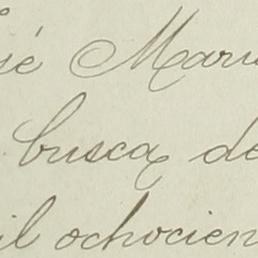 sé Mari
busca de
il ochocien